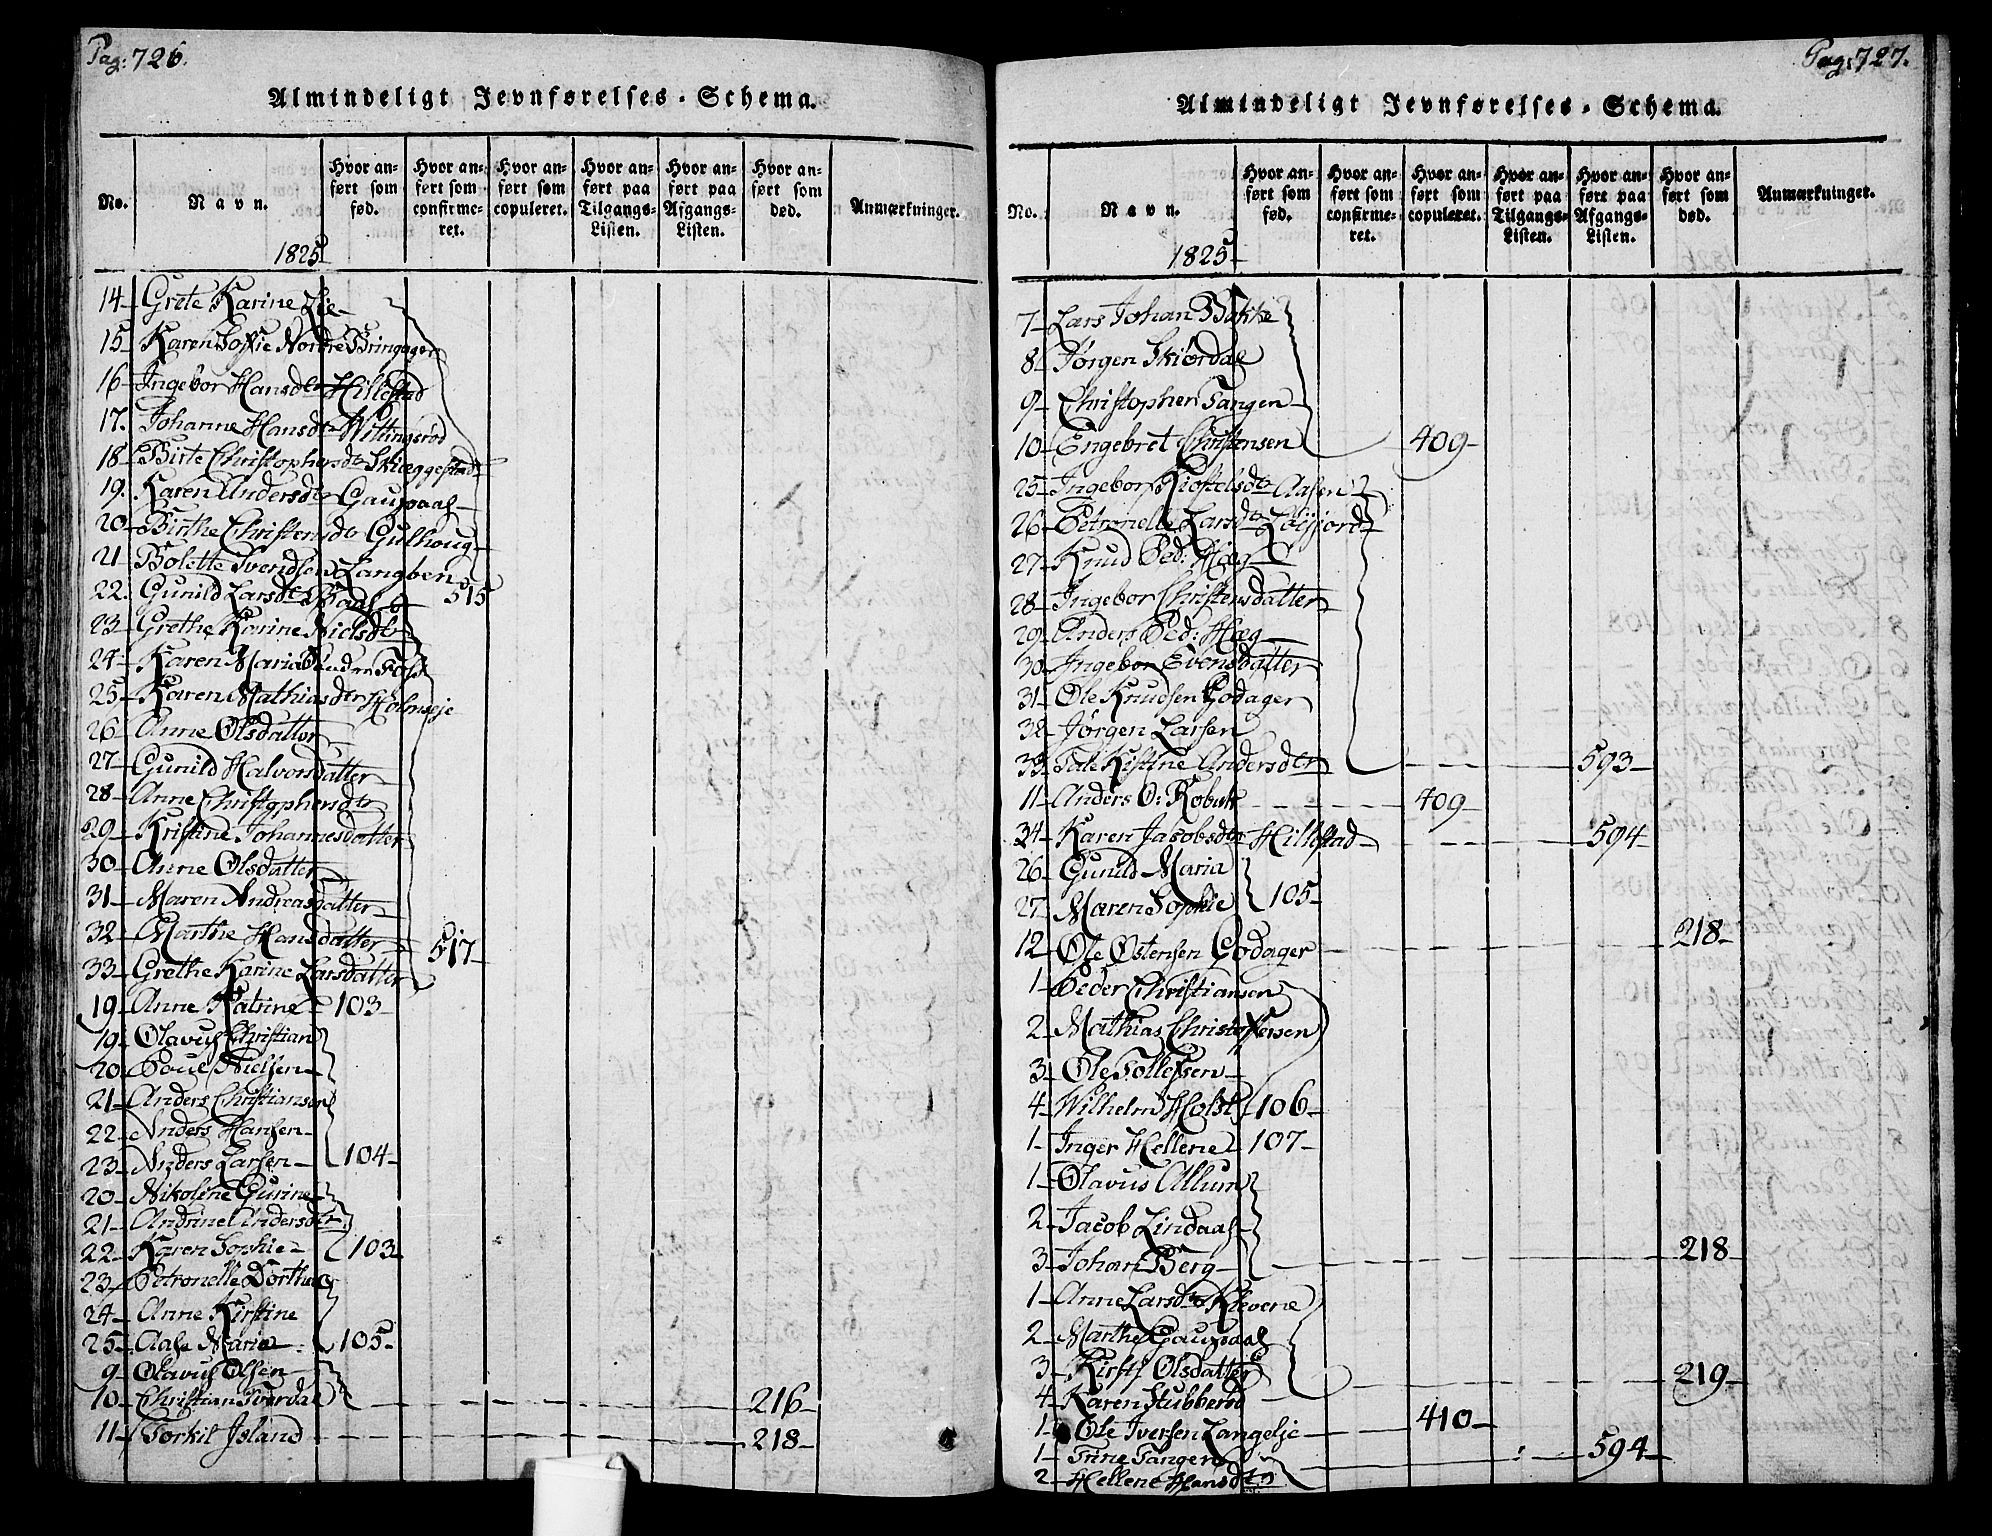 Pag: 726.
Almindeligt Jevnførelses-Schema.
No.
Navn.
Hvor anført som fød.
Hvor anført som confirmeret.
Hvor anført som copuleret.
Hvor anført paa Tilgangs-Listen.
Hvor anført paa Afgangs-Listen.
Hvor anført som død.
Anmærkninger.
1825
14 Grete Karine Lie
15 Karen Sofie Nordre Bringager
16 Ingebor Hansdtr Hillestad
17. Johanne Hansdtr Wittingsrød
18 Birte Christophersdtr Skiæggestad
19. Karen Andersdtr Gausdaal
20 Birthe Christensdtr Gulhoug
21 Bolette Svendsen Langben
22. Gunild Larsdtr 515
23 Grethe Karine Nielsdtr
24 Karen Maria
25 Karen Mathiasdtr Holmseje
26 Anne Olsdatter
27 Gunild Halvorsdatter
28 Anne Christophersdtr
29 Kristine Johannesdatter
30 Anne Olsdatter
31 Maren Andreasdatter
32 Marthe Hansdatter 517
33 Grethe Karine Larsdatter
19 Anne Katrine 103
19 Olavus Christian
20 Poul Nielsen
21 Anders Christiansen
22 Anders Hansen
23 Anders Larsen 104
20 Nikoline Gurine
21 Andrine Andersdtr
22 Karen Sophie 103
23 Petronelle Dorthea
24 Anne Kirstine
25 Aase Maria 105
9 Olavus Olsen
10 Christian Sverdal 216
11 Torkil Island 218
Pag: 727.
Almindeligt Jevnførelses-Schema.
No.
Navn.
Hvor anført som fød.
Hvor anført som confirmeret.
Hvor anført som copuleret.
Hvor anført paa Tilgangs-Listen.
Hvor anført paa Afgangs-Listen.
Hvor anført som død.
Anmærkninger.
1825
7 Lars Johan Bakke
8 Jørgen Skiørdal
9 Christopher Tangen
10 Engebret Christensen 409
25 Ingebor Kiostelsdtr Aasen
26 Petronelle Larsdtr
27 Knud Ped: Hæg
28 Ingebor Christensdatter
29 Anders Ped: Hæg
30 Ingebor Evensdatter
31 Ole Knudsen Godager
32 Jørgen Larsen
33 Tale Kistine Andersdtr 593
11 Anders O: 409
34 Karen Jacobsdtr Hillestad 594
26 Gunild Maria
27 Maren Sophie 105
12 Ole Ostensen Godager 218
1 Peder Christiansen
2 Mathias Christophersen
3 Ole Tollefsen
4 Wilhelm Holst 106
1 Inger Hellene 107
1 Olavus Allum
2 Jacob Lindaas
3 Johan Berg 218
1 Anne Larsdtr Klevene
2 Marthe Gausdaal
3 Kirsti Olsdatter 219
4 Karen Stubberød
1 Ole Iversen Langelje 410
1 Trine Tangen 594
2 Hellene Hansdtr